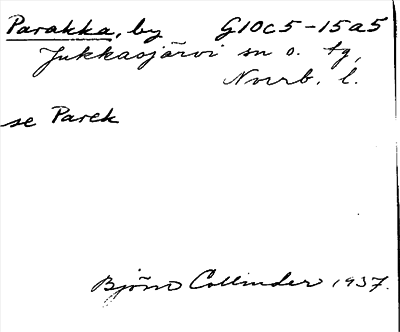 Parakka, by G10c5-15a5
Jukkasjärvi sn o. tg,
Norrb. l.
se Parek
Björn Collinder 1937.